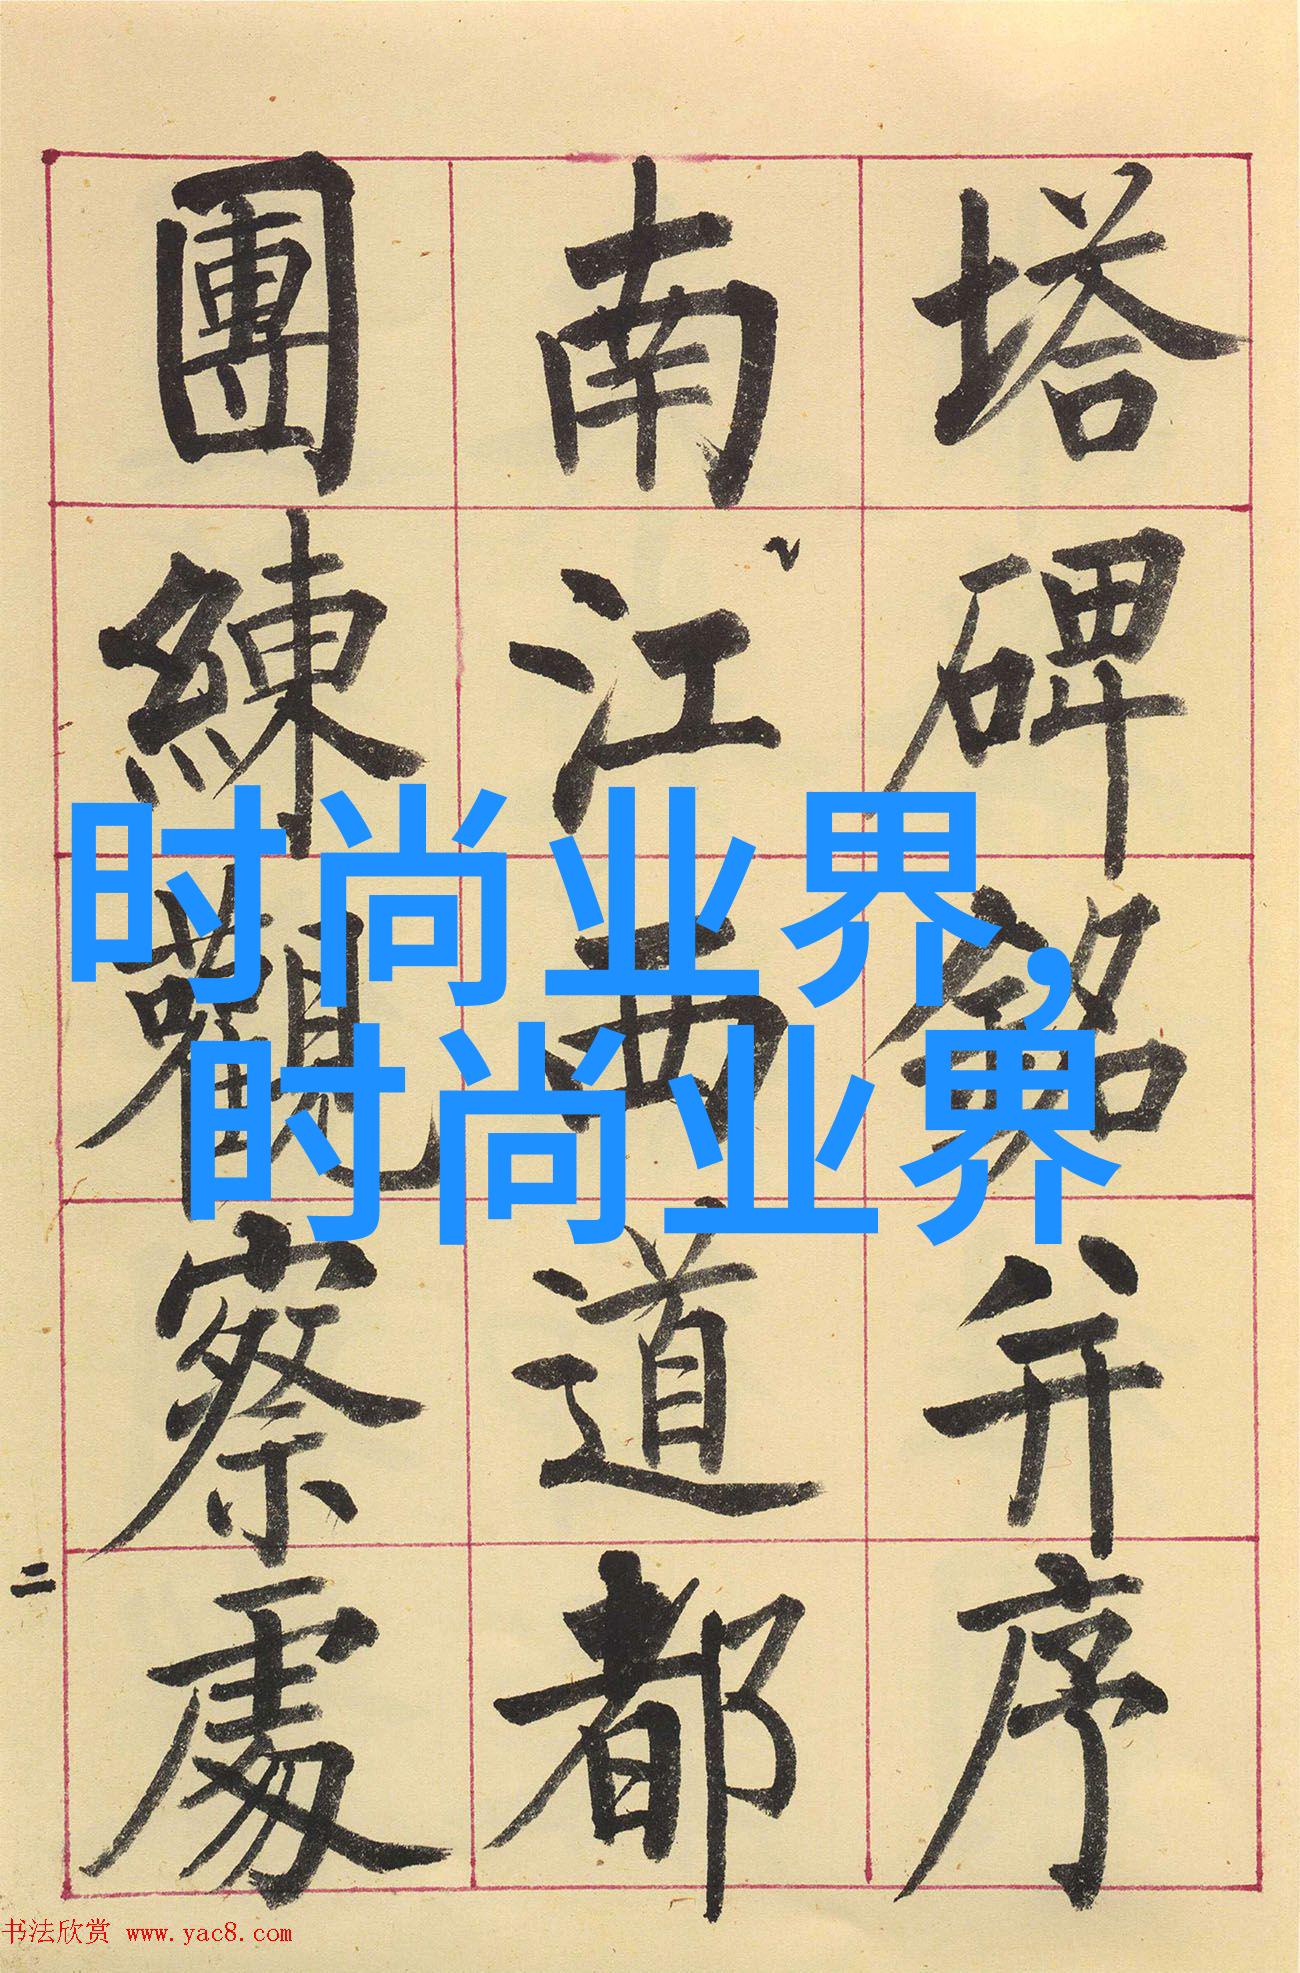 塔碑銘并序
南江西道都
團練觀察處
二
时尚业界,
时尚业界
书法欣赏 www.yac8.com